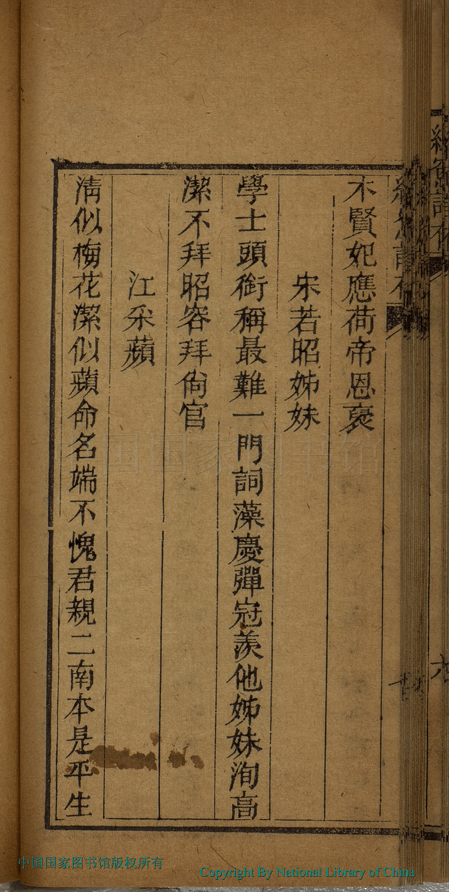 不賢妃應荷帝恩褒
宋若昭姊妹
學士頭銜稱最難一門詞藻慶彈冠羨他姊妹洵高
潔不拜昭容拜尙官
江采蘋
淸似梅花潔似蘋命名端不愧君親二南本是平生
中国国家图书馆版权所有
Copyright By National Library of China